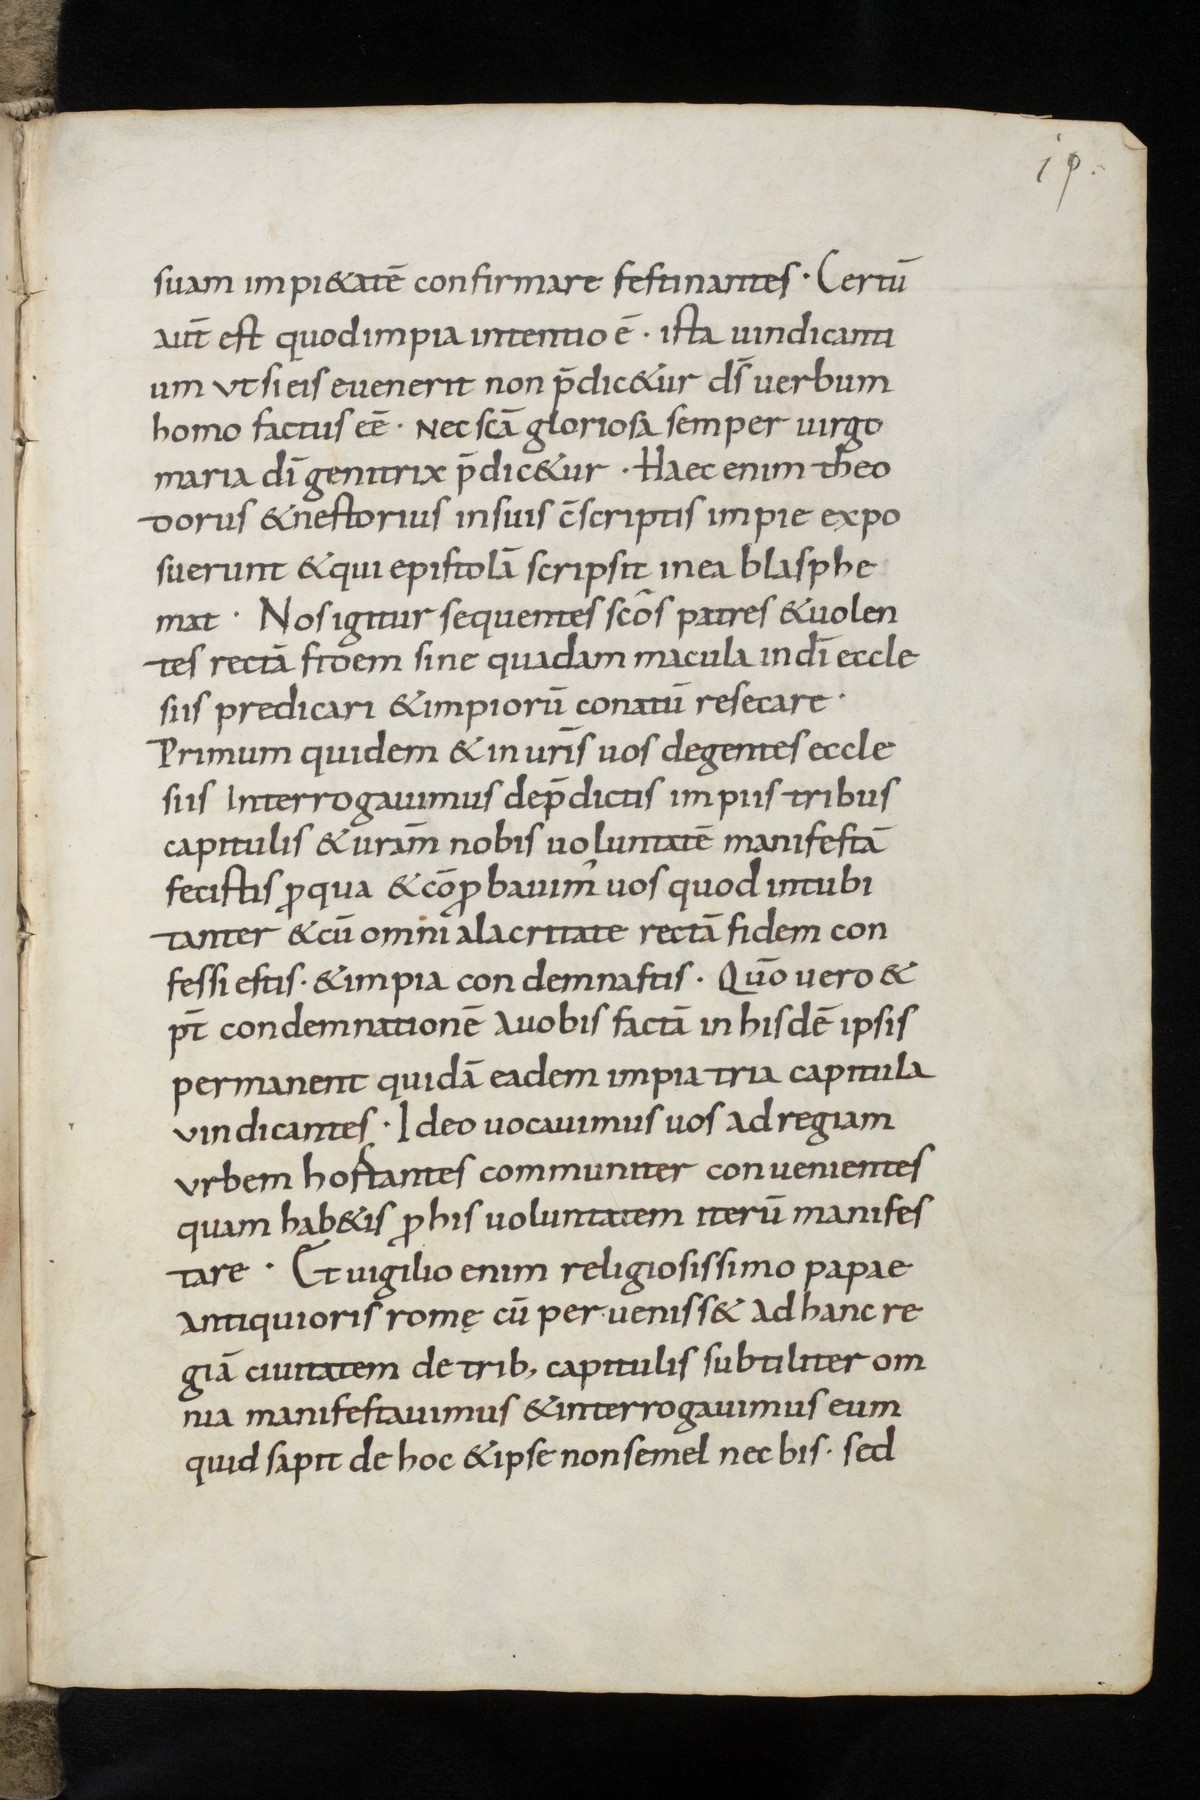 19.
suam impi&atē confirmare festinantes · Certū
aut̄ est quod impia intentio ē · ista uindicanti
um vt si eis euenerit non p̄dic&ur ds̄ uerbum
homo factus eē · Nec scā gloriosa semper uirgo
maria dī genitrix p̄dic&ur · Haec enim theo
dorus & nestorius in suis c̄scriptis impie expo
suerunt & qui epistolā scripsit in ea blasphe
mat · Nos igitur sequentes scōs patres & uolen
tes rectā fidem sine quadam macula in dī eccle
siis predicari & impiorū conatū resecare ·
Primum quidem & in uris̄ uos degentes eccle
siis Interrogauimus de p̄dictis impiis tribus
capitulis & uram̄ nobis uoluntatē manifestā
fecistis ꝓ qua & cōꝓbauim᾽ uos quod intubi
tanter & cū omni alacritate rectā fidem con
fessi estis · & impia condemnastis · Quō uero &
pt̄ condemnationē a uobis factā in hisdē ipsis
permanent quidā eadem impia tria capitula
vindicantes · Ideo uocauimus uos ad regiam
vrbem hortantes communiter conuenientes
quam hab&is ꝓ his uoluntatem iterū manifes
tare · Et uigilio enim religiosissimo papae
antiquioris romę cū perueniss& ad hanc re
giā ciuitatem de trib, capitulis subtiliter om
nia manifestauimus & interrogauimus eum
quid sapit de hoc & ipse non semel nec bis · sed